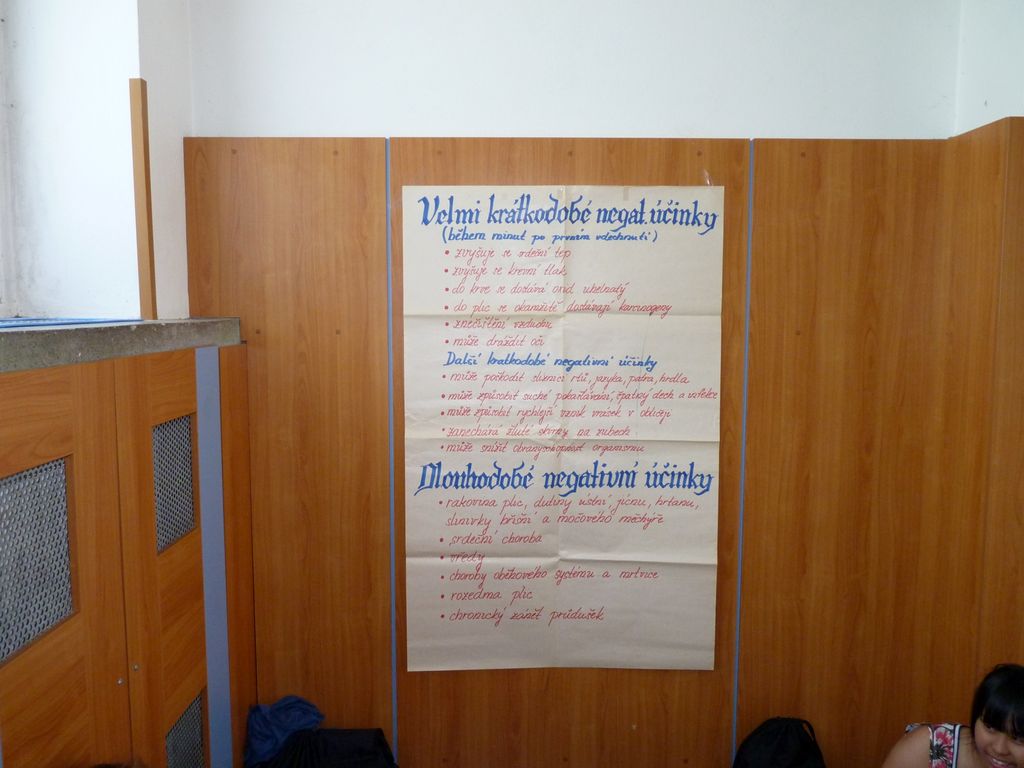 Velmi krátkodobé negat. účinky
(během minut po prvním vdechnutí)
• zvyšuje se srdeční tep
• zvyšuje se krevní tlak
• do krve se dostává oxid uhelnatý
• do plic se okamžitě dostávají karcinogeny
• znečištění vzduchu
• může dráždit oči
Další krátkodobé negativní účinky
• může poškodit sliznici rtů, jazyka, patra, hrdla
• může způsobit suché pokašlávání, špatný dech a
• může způsobit rychlejší vznik vrásek v obličeji
• zanechává žluté skvrny na zubech
• může snížit obranyschopnost organismu
Dlouhodobé negativní účinky
• rakovina plic, dutiny ústní, jícnu, hrtanu,
slinivky břišní a močového měchýře
• srdeční choroba
• vředy
• choroby oběhového systému a mrtvice
• rozedma plic
• chronický zánět průdušek